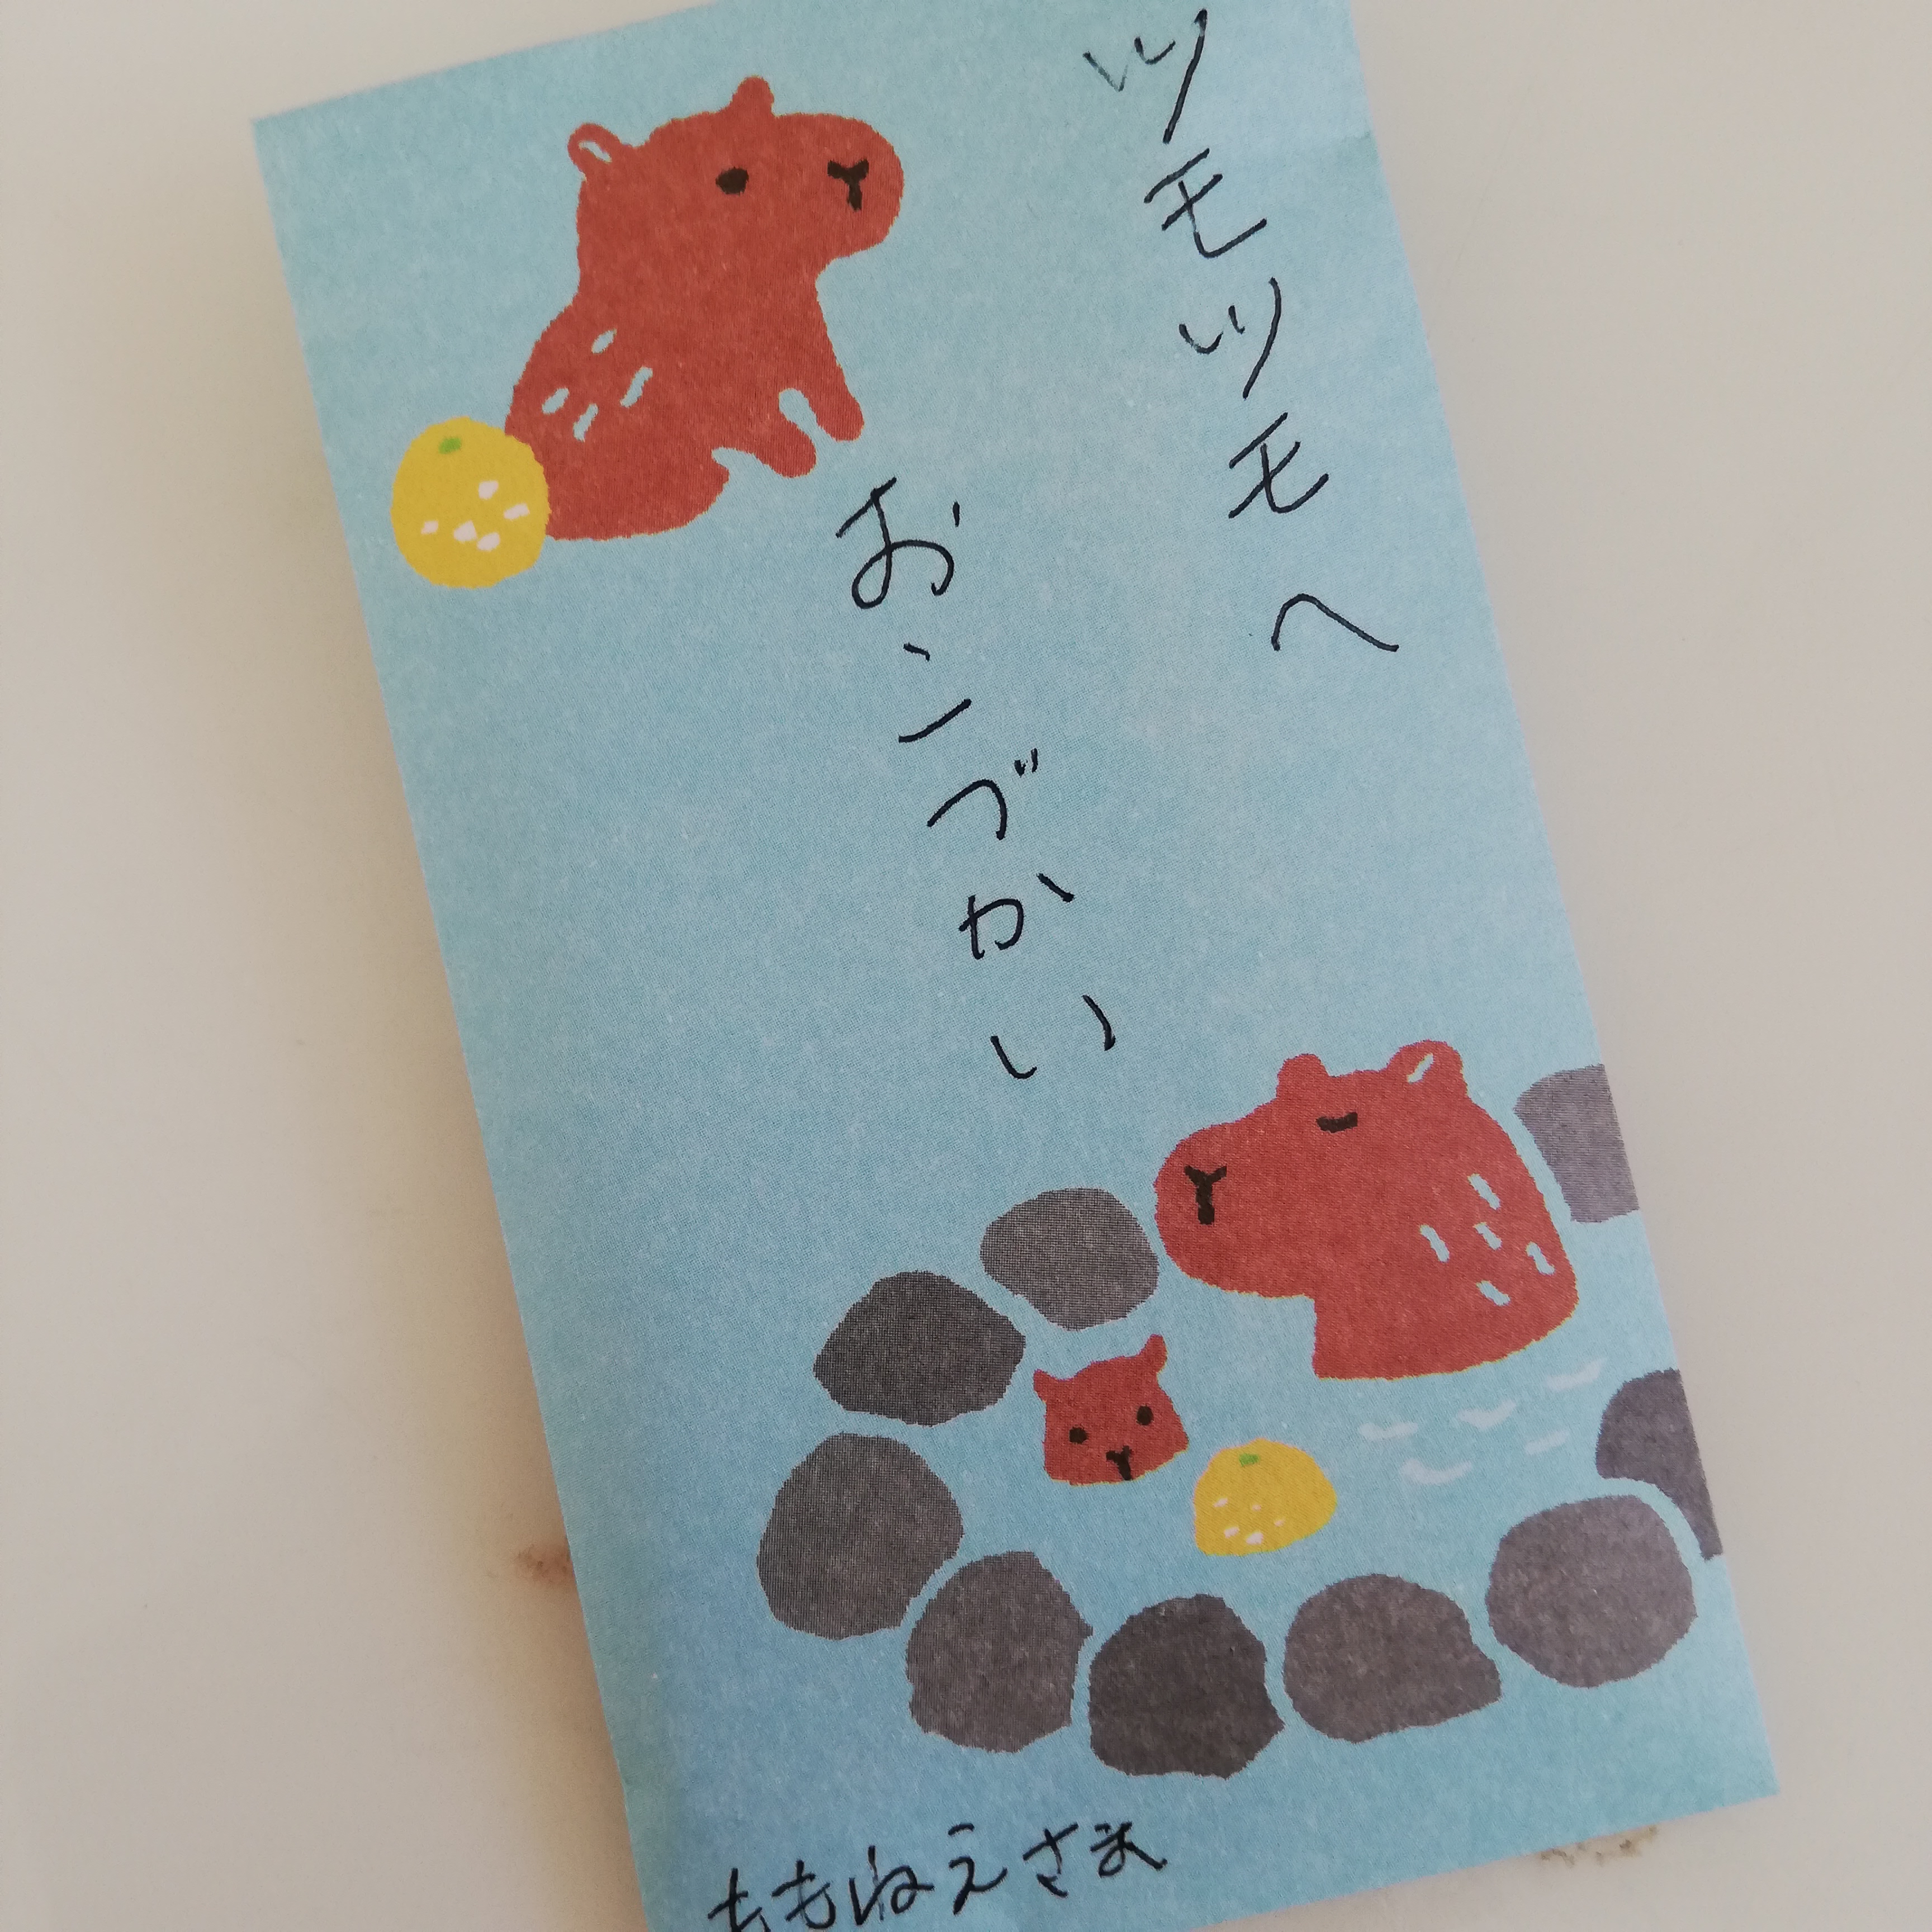 ツモツモへ
おこづかい
もねえさま